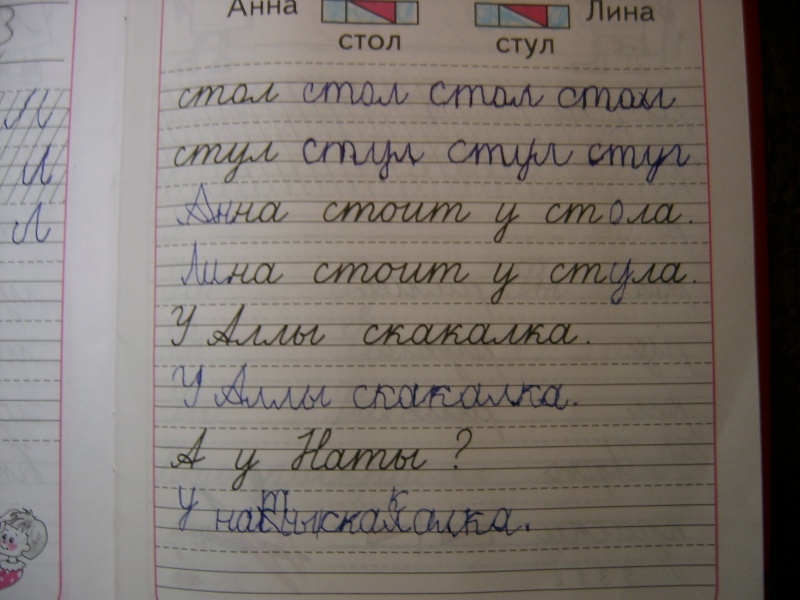 Анна Лина
стол стул
стол стол стол стол
стул стул стул стул
Анна стоит у стола.
Лина стоит у стула.
У Аллы скакалка.
У Аллы скакалка.
А у Наты?
У наты скакалка.